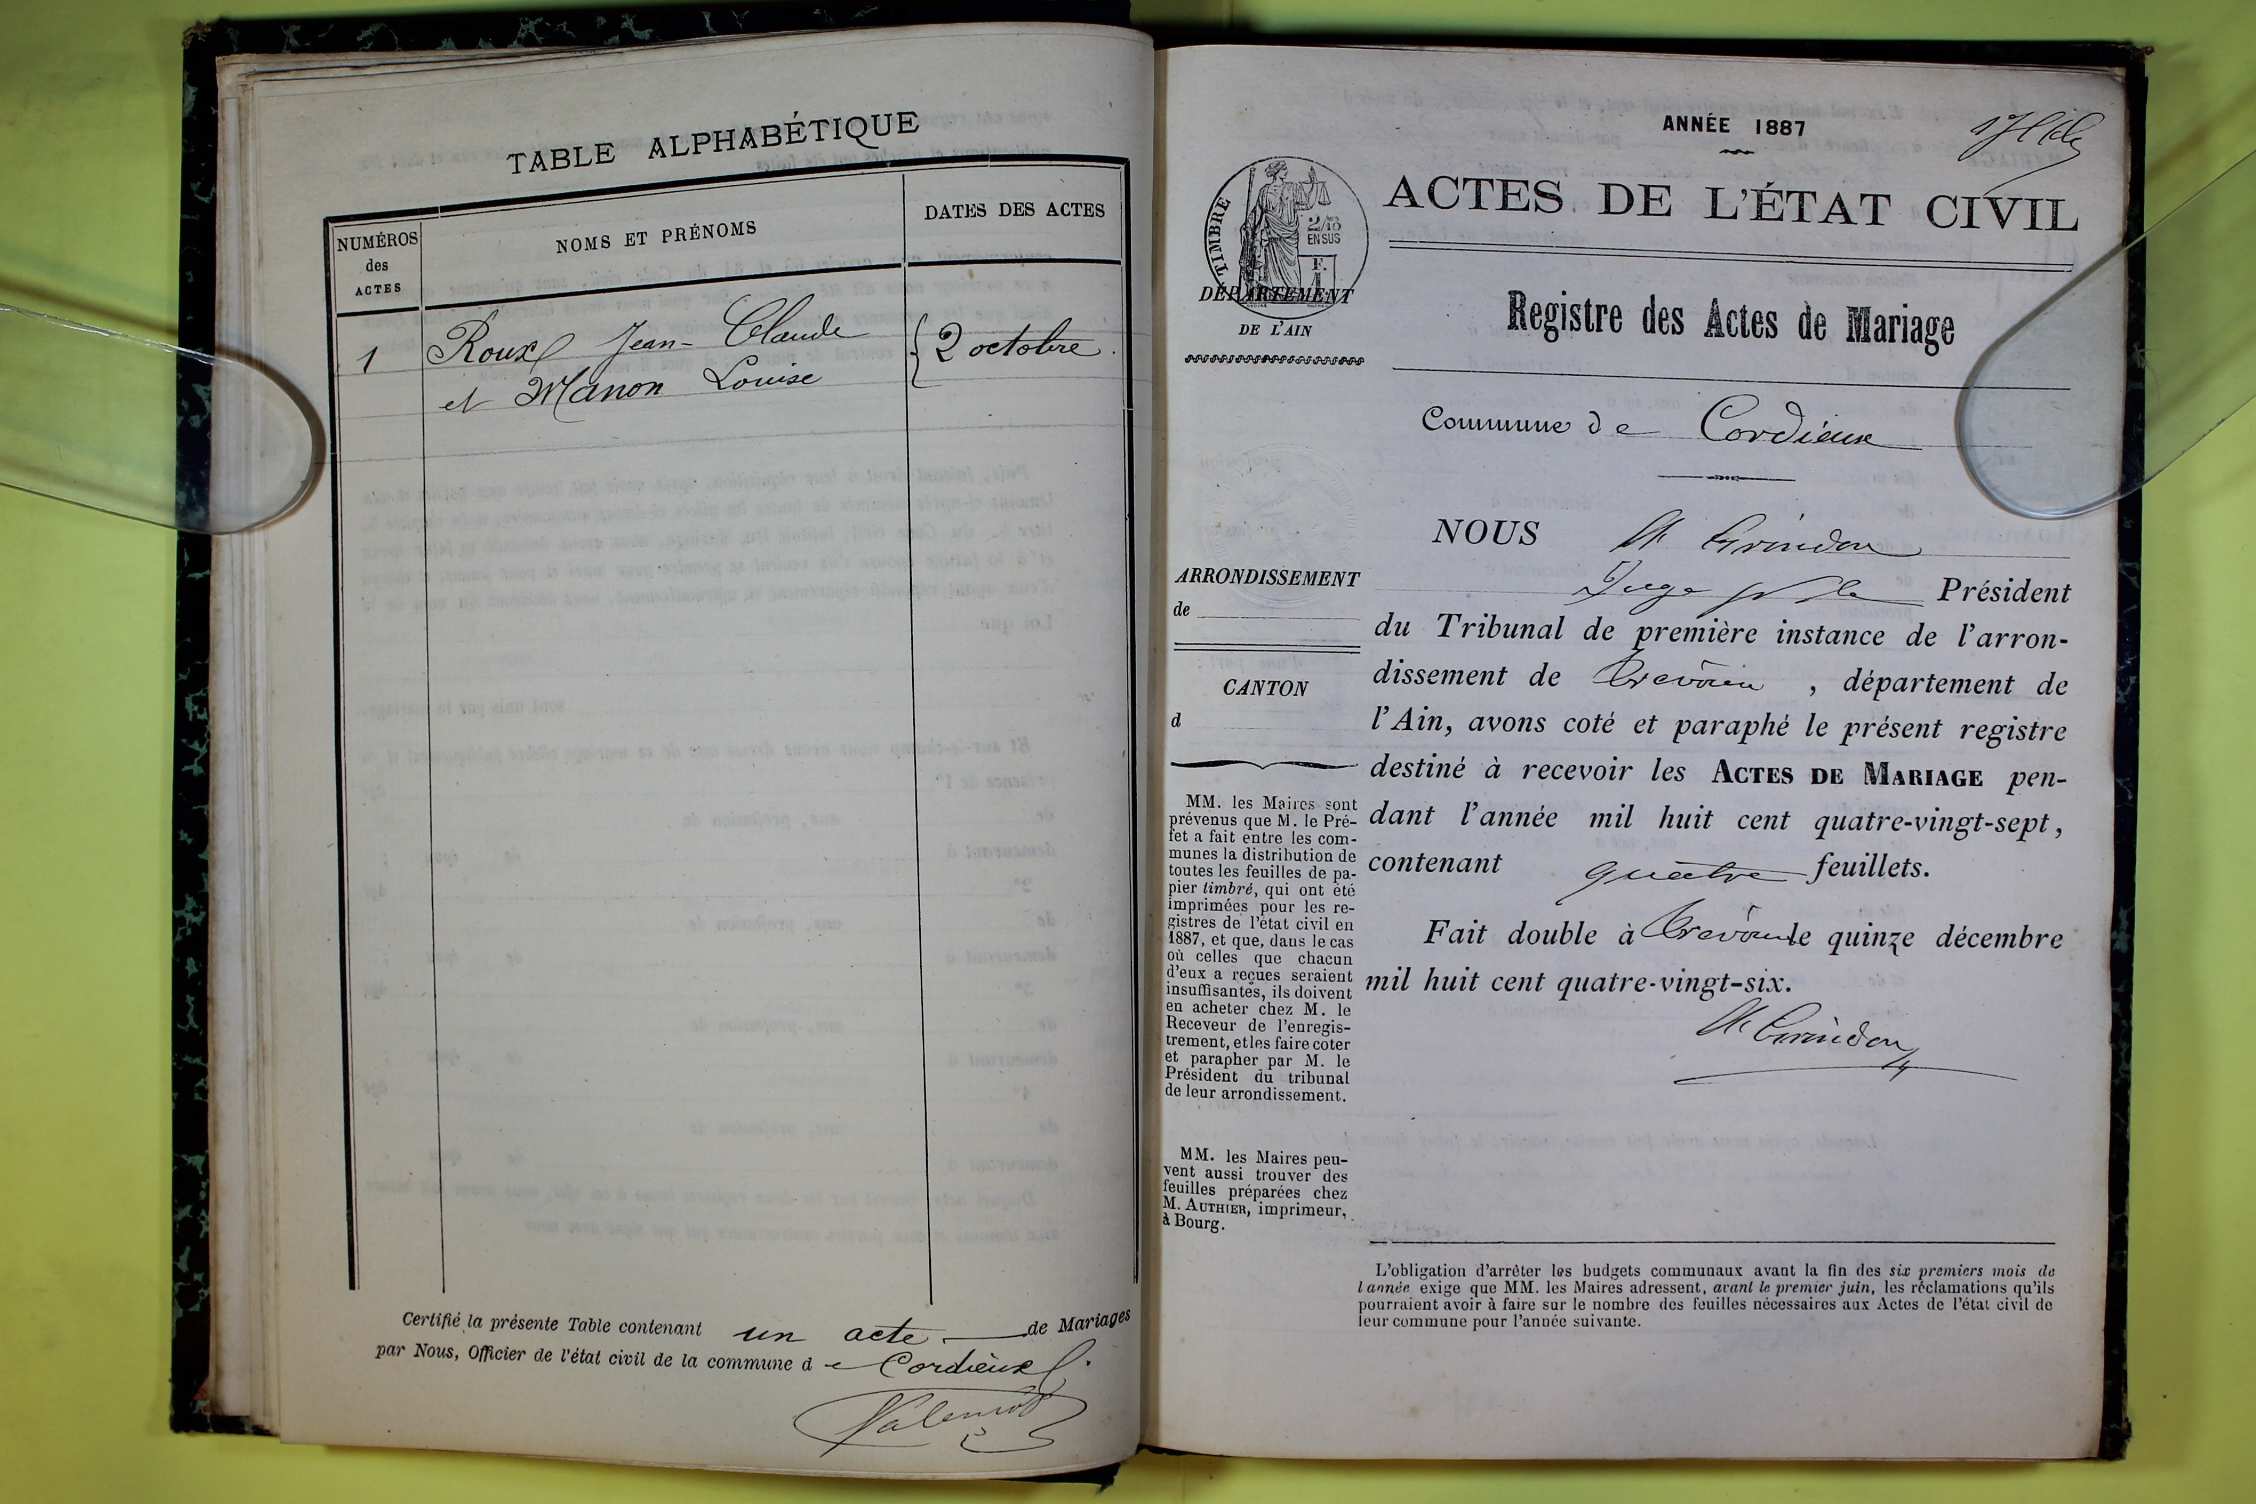 TABLE ALPHABÉTIQUE
NUMÉROS
des
ACTES
NOMS ET PRÉNOMS
DATES DES ACTES
1
Roux Jean-Claude
et Manon Louise
2 octobre.
Certifié la présente Table contenant un acte de Mariages
par Nous, Officier de l'état civil de la commune d e Cordieux.
ANNÉE 1887
TIMBRE
2/10
EN SUS
F.
DÉPARTEMENT
DE L'AIN
ACTES DE L'ÉTAT CIVIL
Registre des Actes de Mariage
Commune de Cordieux
ARRONDISSEMENT
de
CANTON
d
MM. les Maires sont
prévenus que M. le Pré-
fet a fait entre les com-
munes la distribution de
toutes les feuilles de pa-
pier timbré, qui ont été
imprimées pour les re-
gistres de l'état civil en
1887, et que, dans le cas
où celles que chacun
d'eux a reçues seraient
insuffisantes, ils doivent
en acheter chez M. le
Receveur de l'enregis-
trement, et les faire coter
et parapher par M. le
Président du tribunal
de leur arrondissement.
MM. les Maires peu-
vent aussi trouver des
feuilles préparées chez
M. AUTHIER, imprimeur,
à Bourg.
NOUS Grindon
Juge Président
du Tribunal de première instance de l'arron-
dissement de Trévoux, département de
l'Ain, avons coté et paraphé le présent registre
destiné à recevoir les ACTES DE MARIAGE pen-
dant l'année mil huit cent quatre-vingt-sept,
contenant quatre feuillets.
Fait double à Trévoux le quinze décembre
mil huit cent quatre-vingt-six.
Grindon
L'obligation d'arrêter les budgets communaux avant la fin des six premiers mois de
l'année exige que MM. les Maires adressent, avant le premier juin, les réclamations qu'ils
pourraient avoir à faire sur le nombre des feuilles nécessaires aux Actes de l'état civil de
leur commune pour l'année suivante.